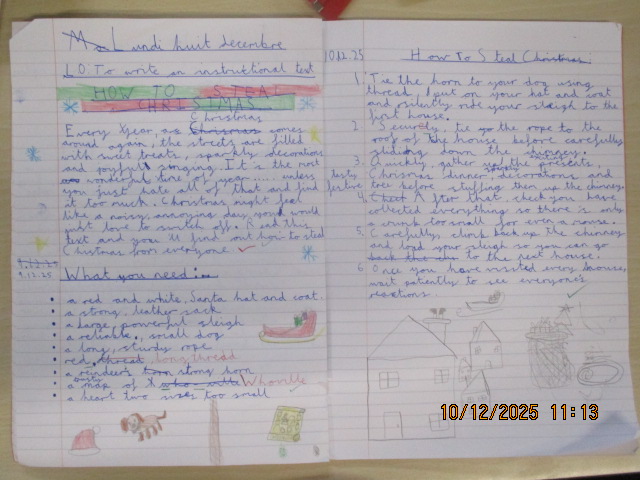 Lundi huit decembre
LO: To write an instructional text
HOW TO STEAL
CHRISTMAS
Christmas
Every Xyear, as Christmas comes
around again, the streets are filled
with sweet treats, sparkly decorations
and joyfull singing. It's the most
wonderful time of year...... unless
you just hate all of that and find
it too much. Christmas might feel
like a noisy, annoying day, you would
just love to switch off. Read this
text and you'll find out how to steal
Christmas from everyone.
9.12.25
9.12.25
What you need:
a red and white, Santa hat and coat.
a strong, leather sack
a large, powerful sleigh
a reliable, small dog
a long, sturdy rope
red, thread long thread
a reindeer's horn strong horn
a map of Whoville
a heart two sizes too small
10.12.25
How To Steal Christmas:
1. Tie the horn to your dog using
thread, put on your hat and coat
and silently ride your sleigh to the
first house.
2. Securely, tie up the rope to the
roof of the house before carefully
sliding down the chimney.
3. Quickly, gather up the presents,
tasty
Chrismas dinner, decorations and
festive
tree before stuffing them up the chimney.
4. After that, check you have
collected everything so there is only
a crumb too small for even a mouse.
5. Carefully, climb back up the chimney
and load your sleigh so you can go
to the next house.
6. Once you have visited every house,
wait patiently to see everyone's
reactions.
10/12/2025 11:13